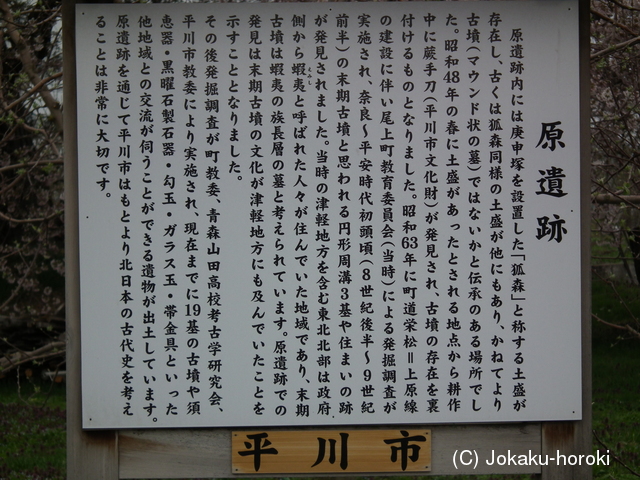 原遺跡
原遺跡内には庚申塚を設置した「狐森」と称する土盛が
存在し、古くは狐森同様の土盛が他にもあり、かねてより
古墳(マウンド状の墓)ではないかと伝承のある場所でし
た。昭和48年の春に土盛があったとされる地点から耕作
中に蕨手刀(平川市文化財)が発見され、古墳の存在を裏
付けるものとなりました。昭和63年に町道栄松=上原線
の建設に伴い尾上町教育委員会(当時)による発掘調査が
実施され、奈良~平安時代初頭頃(8世紀後半~9世紀
前半)の末期古墳と思われる円形周溝3基や住まいの跡
が発見されました。当時の津軽地方を含む東北北部は政府
側から蝦夷と呼ばれた人々が住んでいた地域であり、末期
古墳は蝦夷の族長層の墓と考えられています。原遺跡での
発見は末期古墳の文化が津軽地方にも及んでいたことを
示すこととなりました。
その後発掘調査が町教委、青森山田高校考古学研究会、
平川市教委により実施され、現在までに19基の古墳や須
恵器・黒曜石製石器・勾玉・ガラス玉・帯金具といった
他地域との交流が伺うことができる遺物が出土しています。
原遺跡を通じて平川市はもとより北日本の古代史を考え
ることは非常に大切です。
平川市
(C) Jokaku-horoki